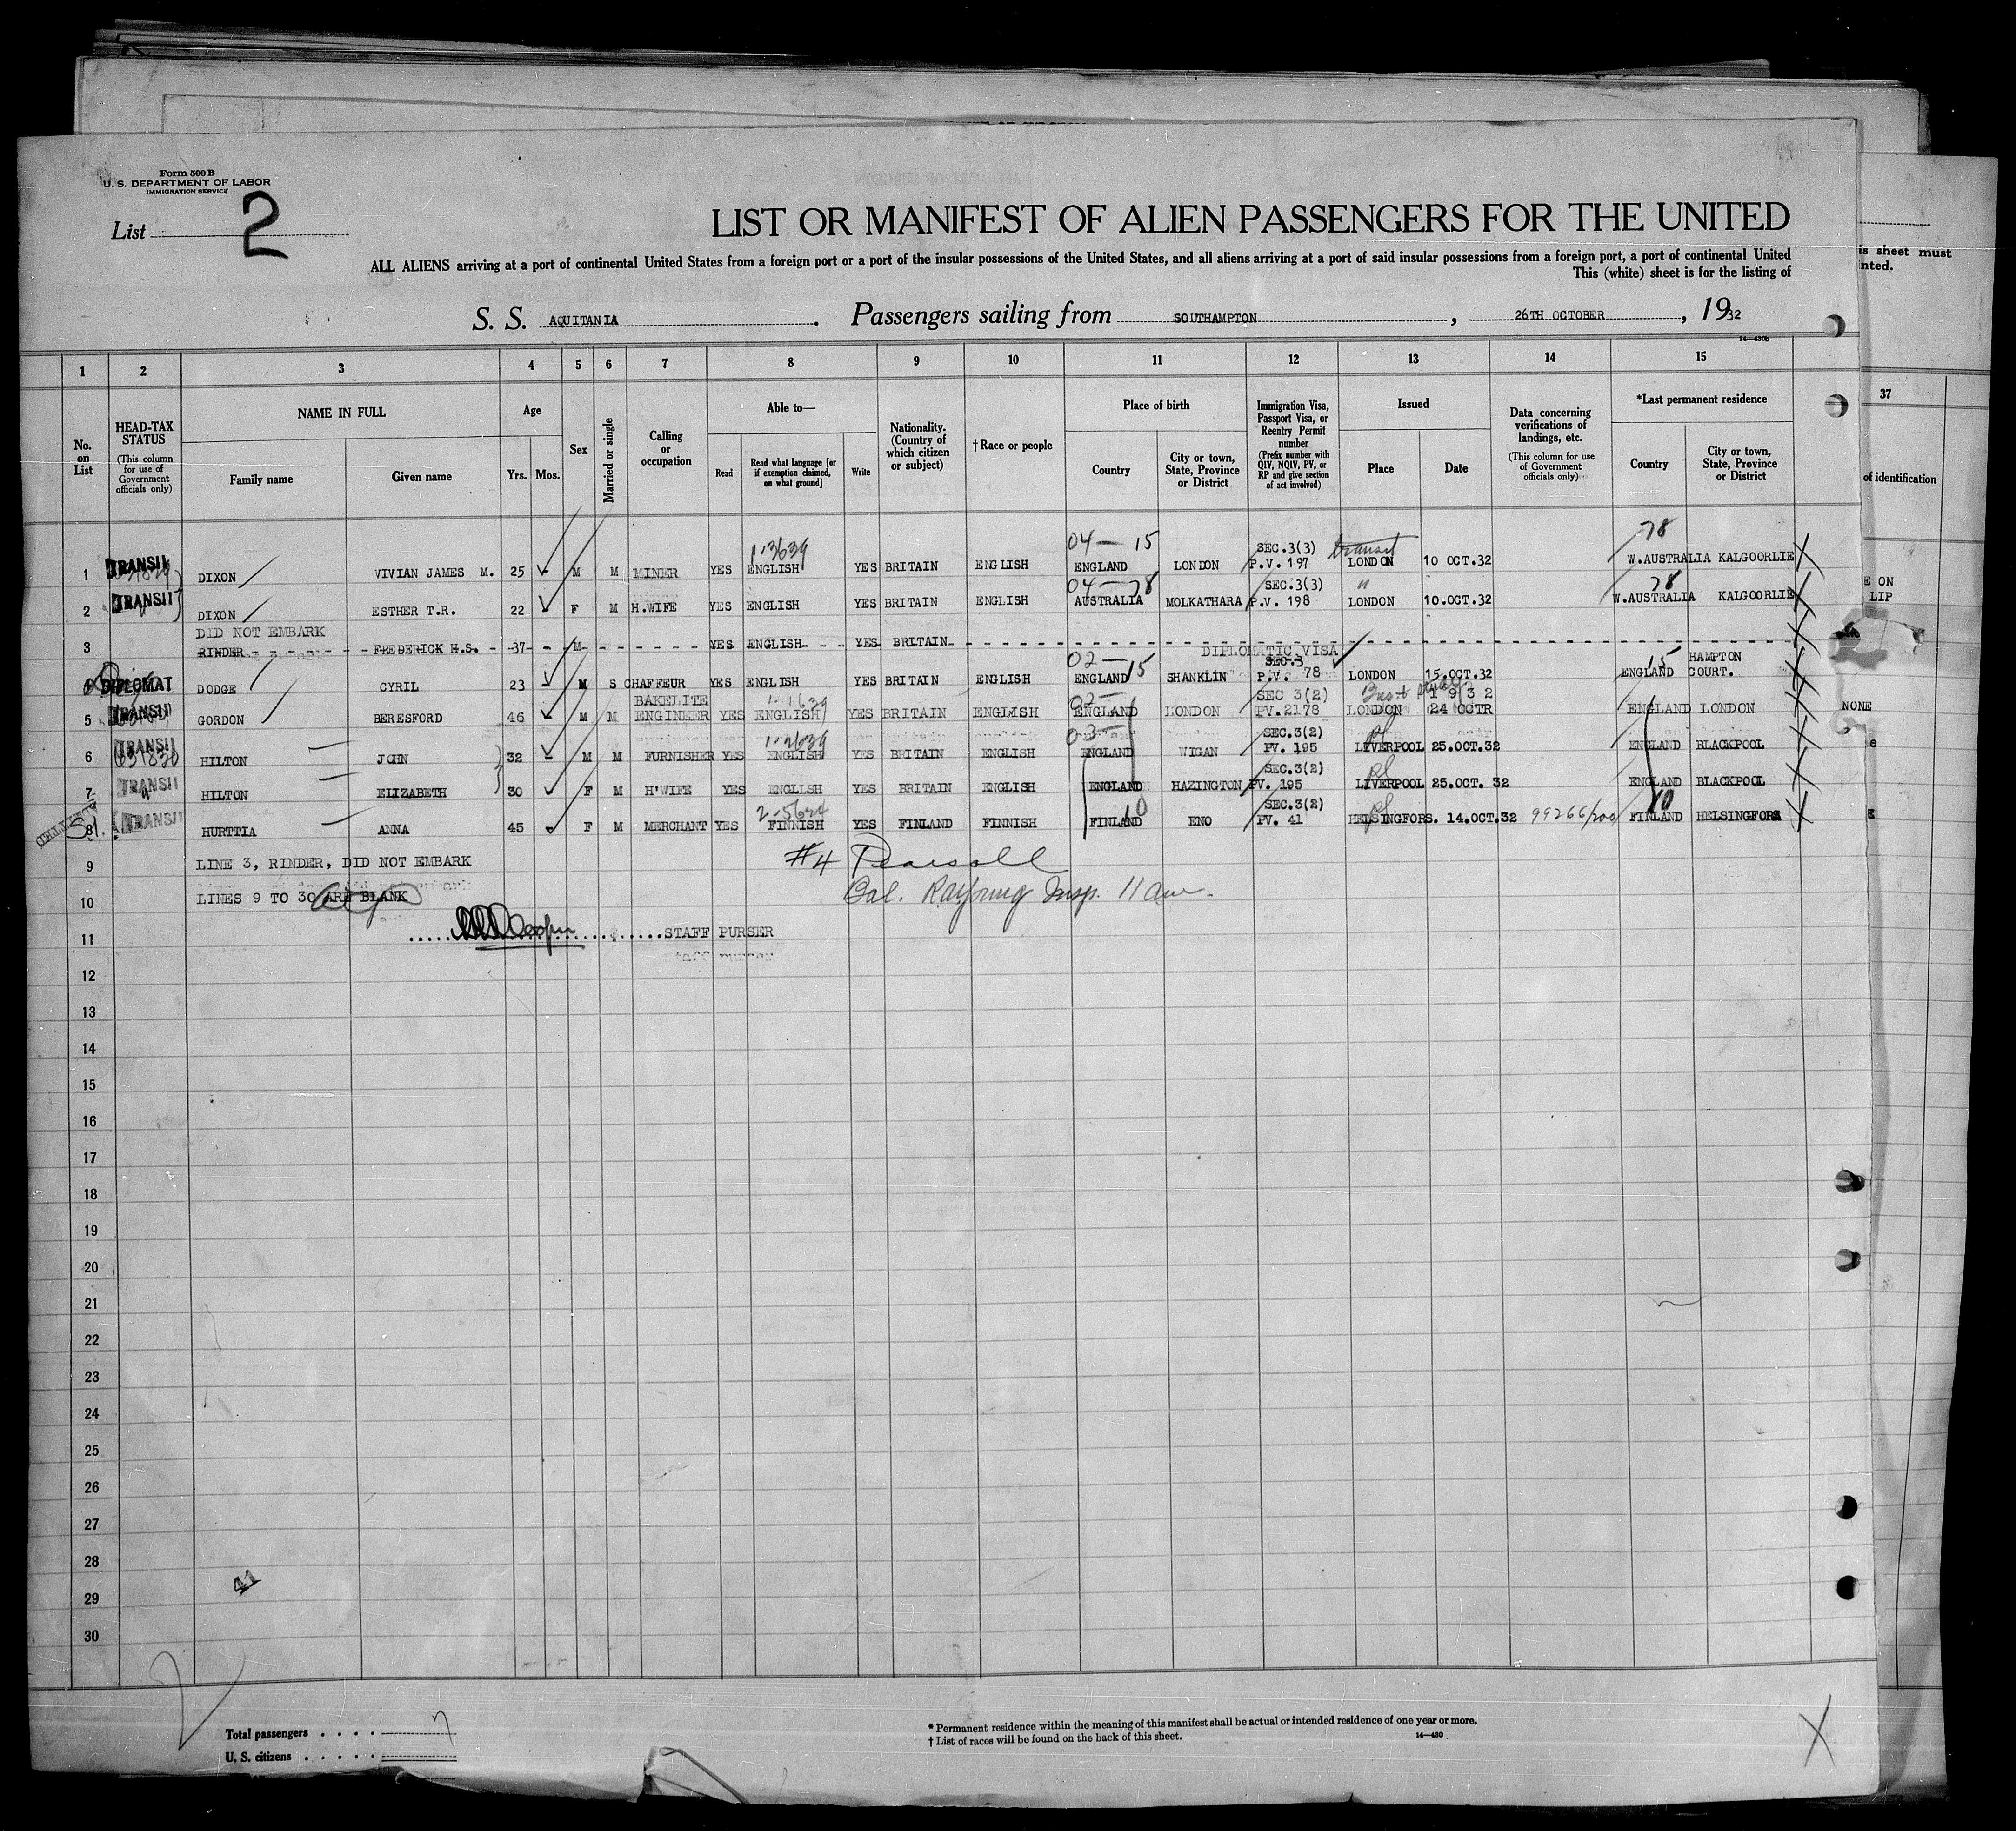 Form 500 B
U. S. DEPARTMENT OF LABOR
IMMIGRATION SERVICE
List 2
LIST OR MANIFEST OF ALIEN PASSENGERS FOR THE UNITED
ALL ALIENS arriving at a port of continental United States from a foreign port or a port of the insular possessions of the United States, and all aliens arriving at a port of said insular possessions from a foreign port, a port of continental United
This (white) sheet is for the listing of
is sheet must
nted.
S. S. AQUITANIA . Passengers sailing from SOUTHAMPTON , 26TH OCTOBER , 1932
14—430B
1 2 3 4 5 6 7 8 9 10 11 12 13 14 15
37
No. on List
HEAD-TAX STATUS
(This column for use of Government officials only)
NAME IN FULL
Family name
Given name
Age
Yrs.
Mos.
Sex
Married or single
Calling or occupation
Able to—
Read
Read what language [or if exemption claimed, on what ground]
Write
Nationality. (Country of which citizen or subject)
† Race or people
Place of birth
Country
City or town, State, Province or District
Immigration Visa, Passport Visa, or Reentry Permit number
(Prefix number with QIV, NQIV, PV, or RP and give section of act involved)
Issued
Place
Date
Data concerning verifications of landings, etc.
(This column for use of Government officials only)
*Last permanent residence
Country
City or town, State, Province or District
of identification
1-3639 04 — 15 SEC.3(3) transit 78
1 TRANSIT DIXON VIVIAN JAMES M. 25 M M MINER YES ENGLISH YES BRITAIN ENGLISH ENGLAND LONDON P.V. 197 LONDON 10 OCT.32 W.AUSTRALIA KALGOORLIE
04 — 78 SEC.3(3) " 78 E ON
2 TRANSIT DIXON ESTHER T.R. 22 F M H.WIFE YES ENGLISH YES BRITAIN ENGLISH AUSTRALIA MOLKATHARA P.V. 198 LONDON 10.OCT.32 W.AUSTRALIA KALGOORLIE LIP
DID NOT EMBARK
3 RINDER FREDERICK H.S. 37 M YES ENGLISH YES BRITAIN
DIPLOMATIC VISA
02 — 15 SEC.3 15 HAMPTON
4 DIPLOMAT DODGE CYRIL 23 M S CHAFFEUR YES ENGLISH YES BRITAIN ENGLISH ENGLAND SHANKLIN P.V. 78 LONDON 15.OCT.32 ENGLAND COURT.
BAKELITE 02 — SEC 3(2) 1932
5 TRANSIT GORDON BERESFORD 46 M M ENGINEER YES ENGLISH YES BRITAIN ENGLISH ENGLAND LONDON PV.2178 LONDON 24 OCTR ENGLAND LONDON NONE
1-3639 03 — SEC.3(2)
6 TRANSIT HILTON JOHN 32 M M FURNISHER YES ENGLISH YES BRITAIN ENGLISH ENGLAND WIGAN PV. 195 LIVERPOOL 25.OCT.32 ENGLAND BLACKPOOL e
SEC.3(2)
7 TRANSIT HILTON ELIZABETH 30 F M H'WIFE YES ENGLISH YES BRITAIN ENGLISH ENGLAND HAZINGTON PV. 195 LIVERPOOL 25.OCT. 32 ENGLAND BLACKPOOL
10 SEC.3(2) 10
8 TRANSIT HURTTIA ANNA 45 F M MERCHANT YES FINNISH YES FINLAND FINNISH FINLAND ENO PV. 41 HELSINGFORS. 14.OCT.32 FINLAND HELSINGFORS
9 LINE 3, RINDER, DID NOT EMBARK #4 Pearsall
10 LINES 9 TO 30 ARE BLANK Bal. Insp. 11 am.
11 STAFF PURSER
12
13
14
15
16
17
18
19
20
21
22
23
24
25
26
27
28
29
30
41
Total passengers . . . . 7
U. S. citizens . . . . .
* Permanent residence within the meaning of this manifest shall be actual or intended residence of one year or more.
† List of races will be found on the back of this sheet.
14—430